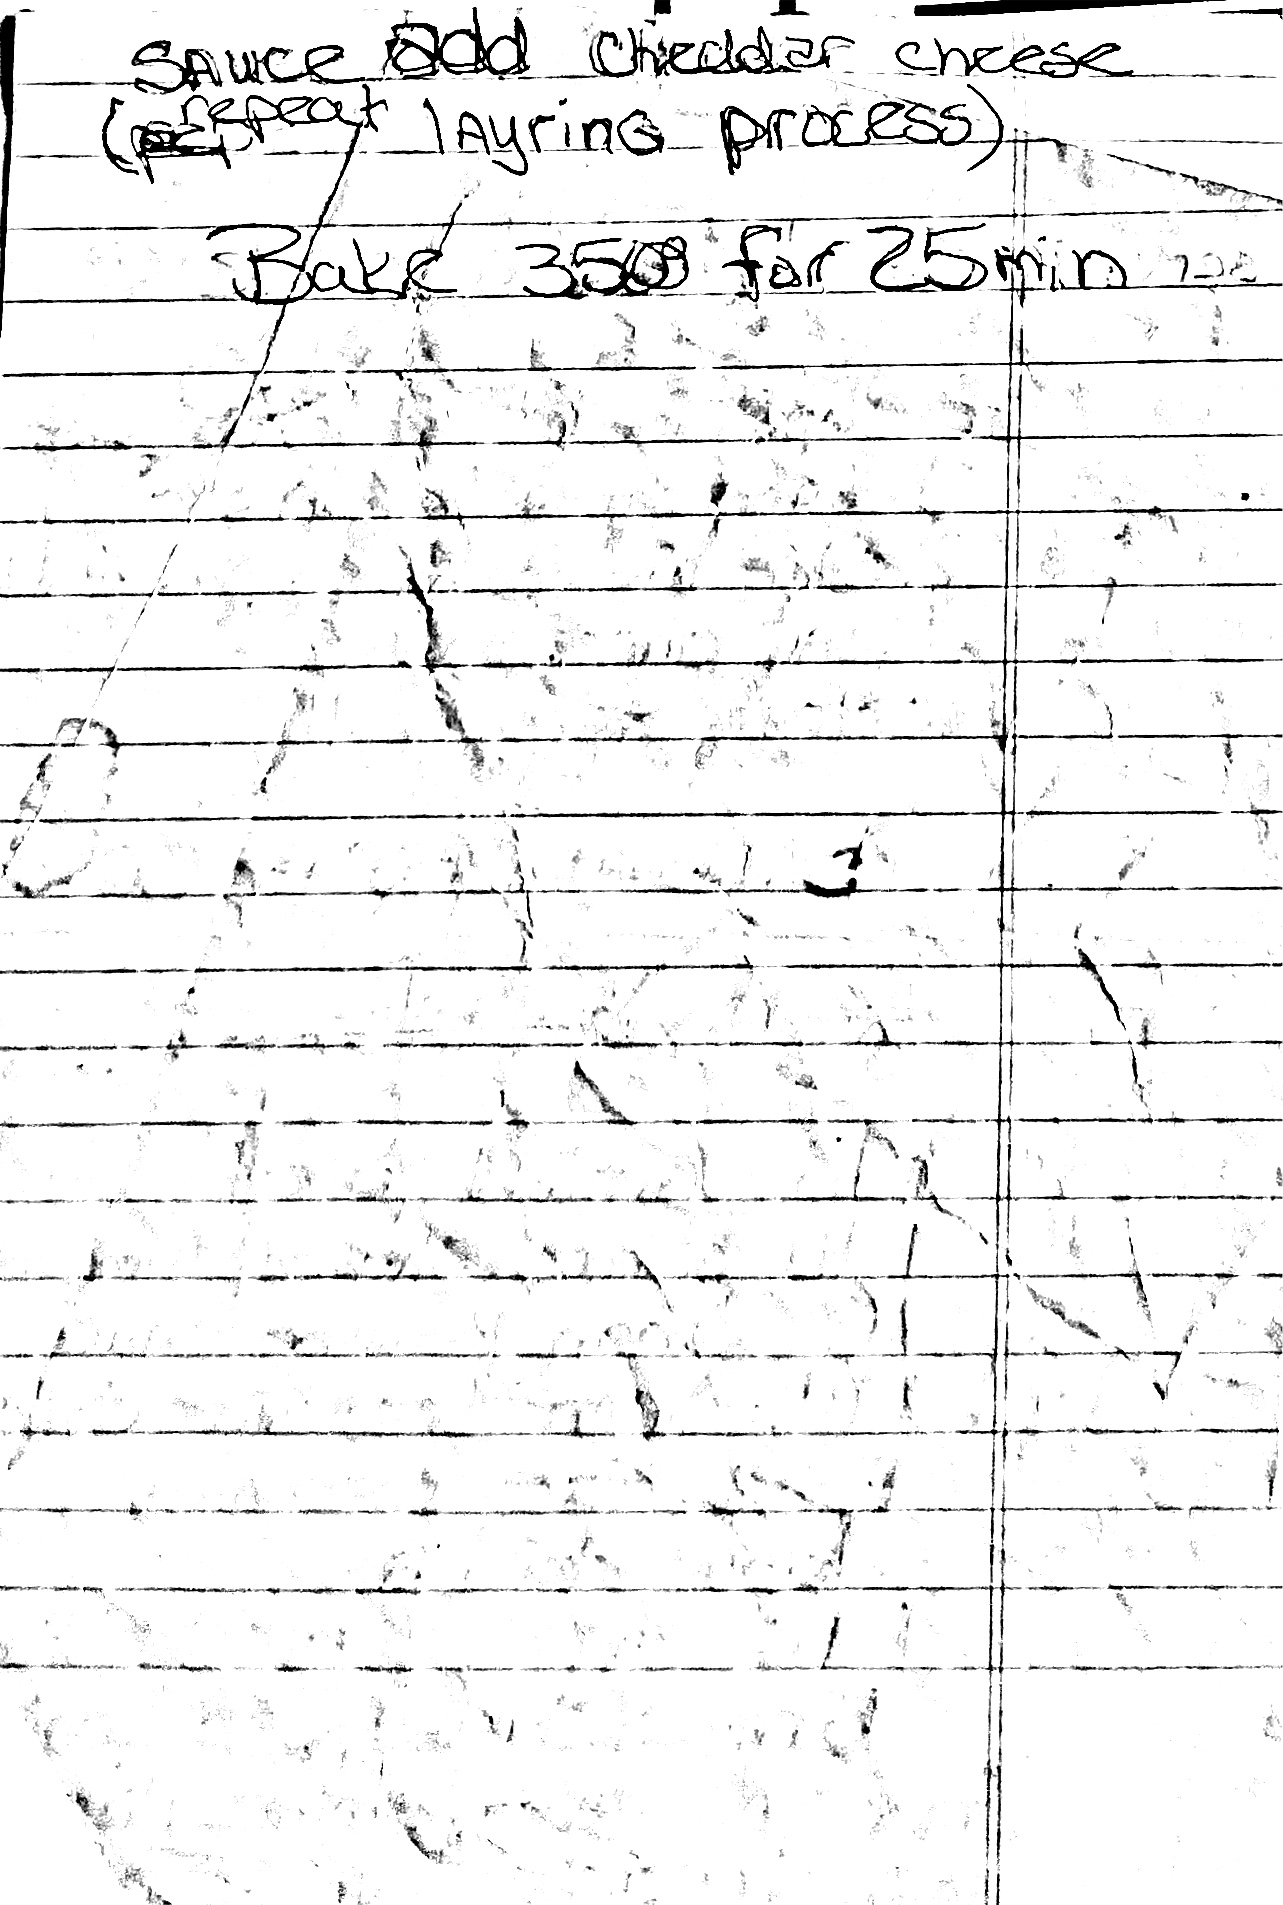 SAuce add Cheddar cheese
(repeat lAyring process)
Bake 350° for 25min